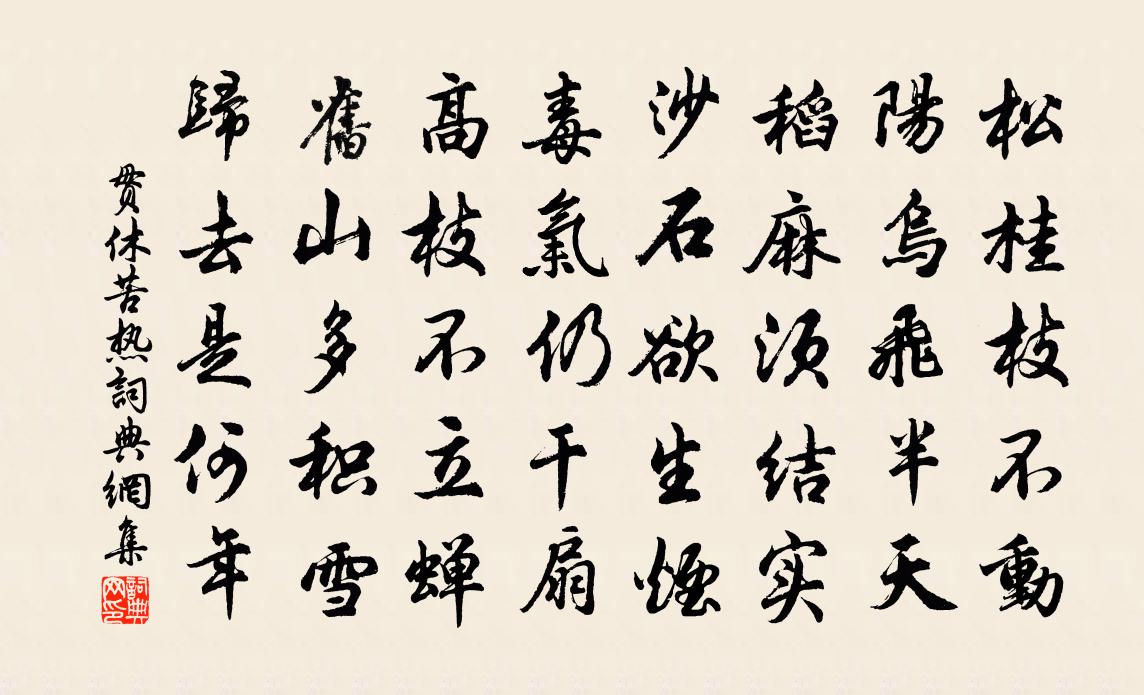 松桂枝不動
陽烏飛半天
稻麻須结实
沙石欲生煙
毒氣仍干扇
高枝不立蝉
舊山多积雪
歸去是何年
贯休苦热詞典網集
詞典网印